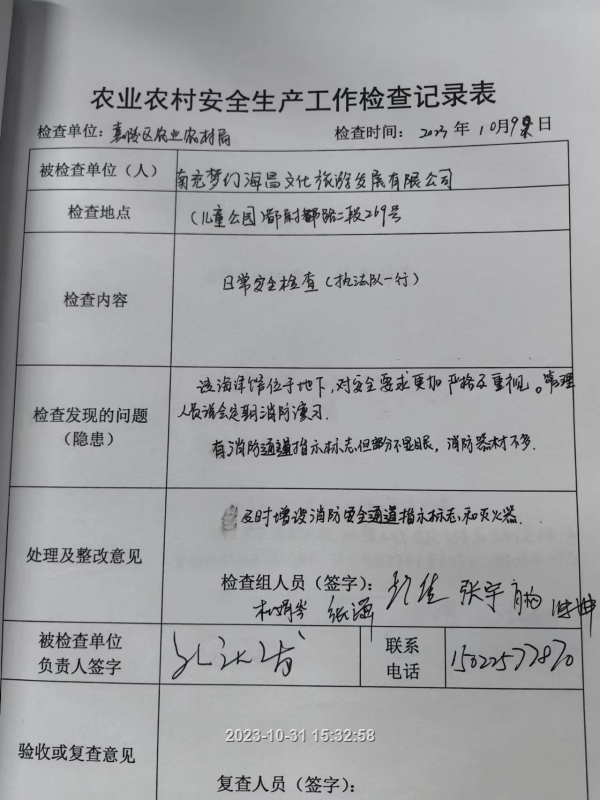 农业农村安全生产工作检查记录表
检查单位：嘉陵区农业农村局 检查时间：2023年10月9日
被检查单位（人） 南充梦幻海昌文化旅游发展有限公司
检查地点 （儿童公园）都尉路二段269号
检查内容 日常安全检查（执法队一行）
检查发现的问题
（隐患）
该海洋馆位于地下，对安全要求更加严格及重视。管理
人员说会定期消防演习.
有消防通道指示标志但部分不显眼，消防器材不多.
及时增设消防安全通道指示标志和灭火器.
处理及整改意见
检查组人员（签字）：张宇
被检查单位
负责人签字
联系
电话
15022577870
2023-10-31 15:32:58
验收或复查意见
复查人员（签字）：